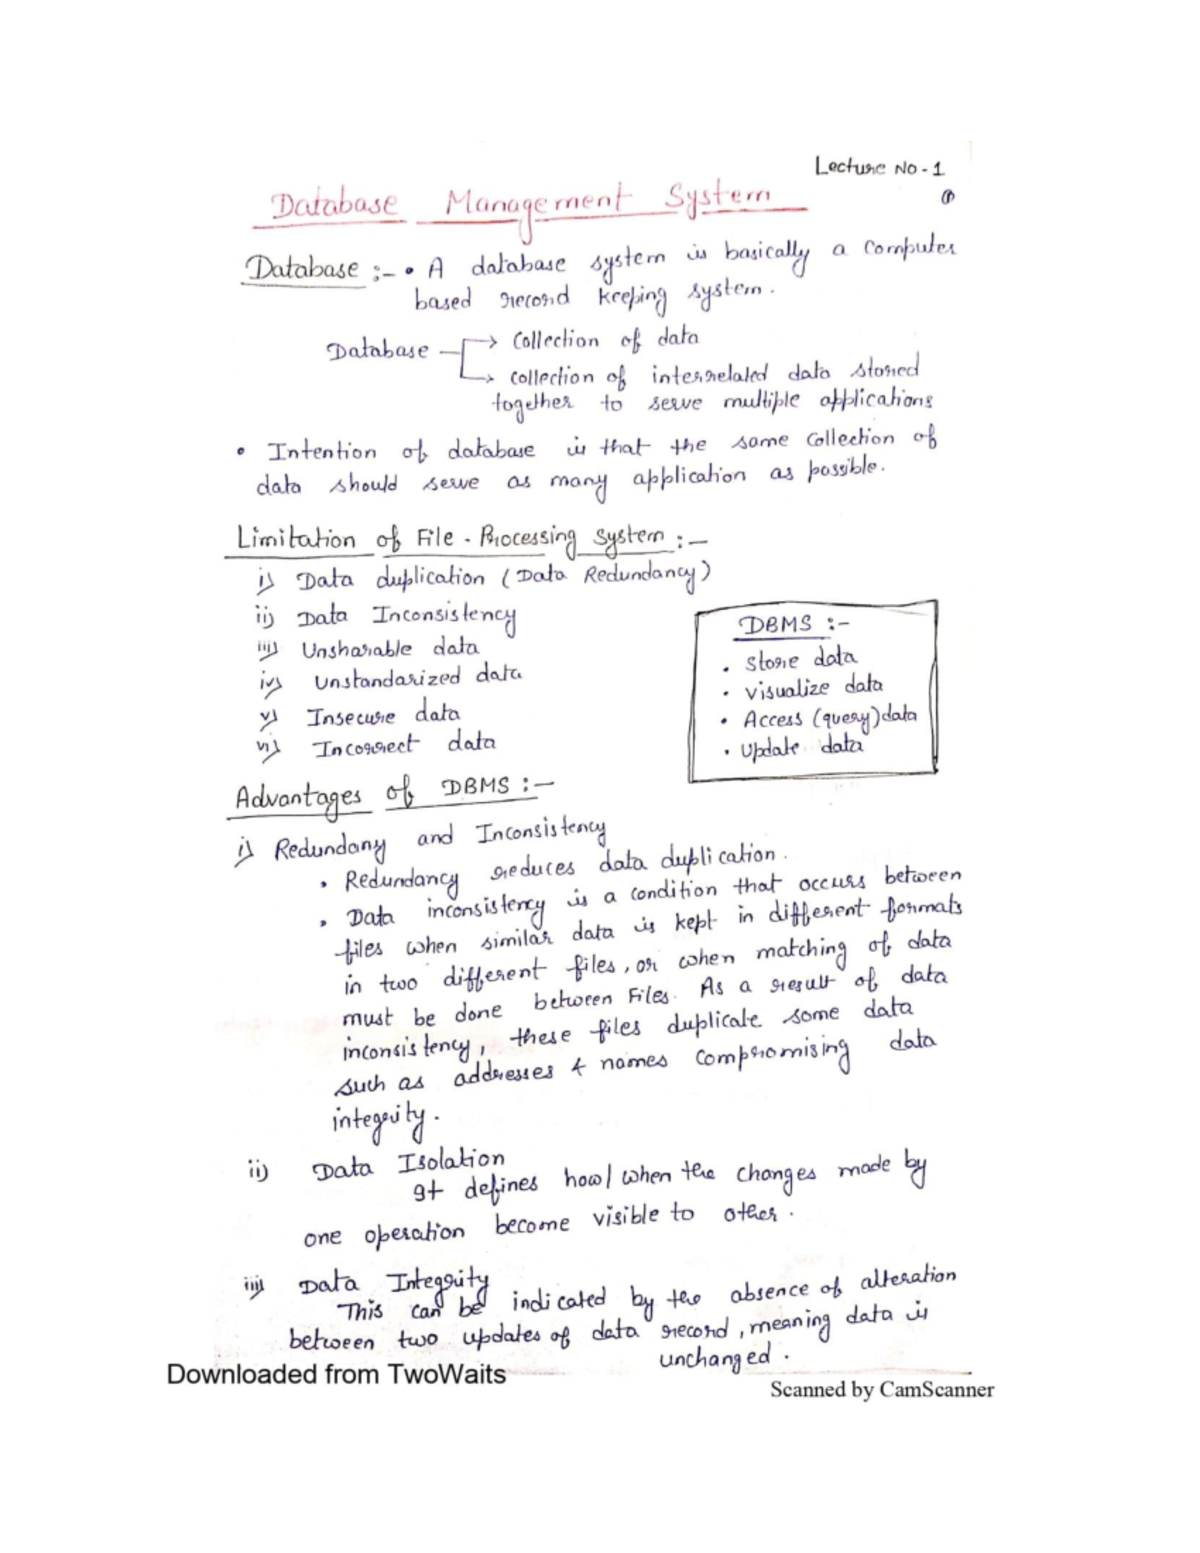 Lecture No - 1
①
Database Management System
Database :- • A database system is basically a computer
based record keeping system.
Database → Collection of data
→ collection of interrelated data stored
together to serve multiple applications
• Intention of database is that the same collection of
data should serve as many application as possible.
Limitation of File - Processing System :-
i) Data duplication (Data Redundancy)
ii) Data Inconsistency
iii) Unsharable data
iv) Unstandarized data
v) Insecure data
vi) Incorrect data
DBMS :-
• store data
• visualize data
• Access (query) data
• update data
Advantages of DBMS :-
i) Redundany and Inconsistency
• Redundancy reduces data duplication.
• Data inconsistency is a condition that occurs between
files when similar data is kept in different formats
in two different files, or when matching of data
must be done between Files. As a result of data
inconsistency, these files duplicate some data
such as addresses & names compromising data
integrity.
ii) Data Isolation
It defines how/when the changes made by
one operation become visible to other.
iii) Data Integrity
This can be indicated by the absence of alteration
between two updates of data record, meaning data is
unchanged.
Downloaded from TwoWaits
Scanned by CamScanner